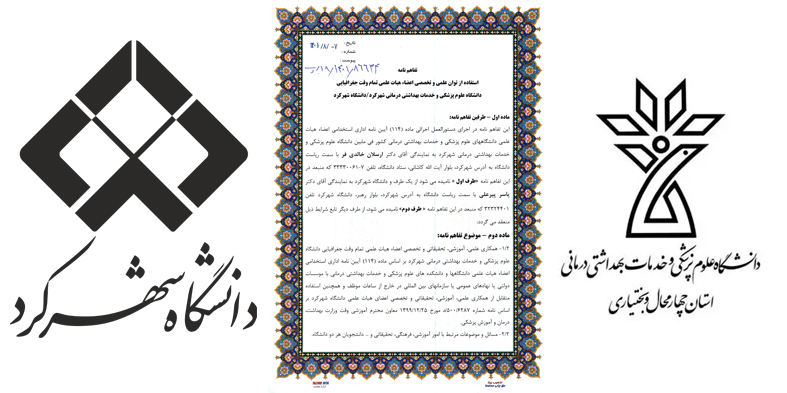 دانشگاه شهرکرد
تاریخ: ۱۴۰۱/۸/۰۷
شماره:
پیوست:
تفاهم نامه
استفاده از توان علمی و تخصصی اعضاء هیات علمی تمام وقت جغرافیایی
دانشگاه علوم پزشکی و خدمات بهداشتی درمانی شهرکرد/دانشگاه شهرکرد
ماده اول – طرفین تفاهم نامه:
این تفاهم نامه در اجرای دستورالعمل اجرائی ماده (۱۱۴) آیین نامه اداری استخدامی اعضاء هیات
علمی دانشگاههای علوم پزشکی و خدمات بهداشتی درمانی کشور فی مابین دانشگاه علوم پزشکی و
خدمات بهداشتی درمانی شهرکرد به نمایندگی آقای دکتر ارسلان خالدی فر با سمت ریاست
دانشگاه به آدرس شهرکرد، بلوار آیت الله کاشانی، ستاد دانشگاه، تلفن ۷-۳۳۳۳۰۰۶۱ که منبعد در
این تفاهم نامه «طرف اول» نامیده می شود از یک طرف و دانشگاه شهرکرد به نمایندگی آقای دکتر
یاسر پیرعلی با سمت ریاست دانشگاه به آدرس شهرکرد، بلوار رهبر، دانشگاه شهرکرد تلفن
۳۲۳۲۴۴۰۱ که منبعد در این تفاهم نامه «طرف دوم» نامیده می شود، از طرف دیگر تابع شرایط ذیل
منعقد می گردد:
ماده دوم – موضوع تفاهم نامه:
۱/۲- همکاری علمی، آموزشی، تحقیقاتی و تخصصی اعضاء هیات علمی تمام وقت جغرافیایی دانشگاه
علوم پزشکی و خدمات بهداشتی درمانی شهرکرد بر اساس ماده (۱۱۴) آیین نامه اداری استخدامی
اعضاء هیات علمی دانشگاهها و دانشکده های علوم پزشکی و خدمات بهداشتی درمانی با موسسات
دولتی یا نهادهای عمومی یا سازمانهای بین المللی در خارج از ساعات موظف و همچنین استفاده
متقابل از همکاری علمی، آموزشی، تحقیقاتی و تخصصی اعضای هیات علمی دانشگاه شهرکرد بر
اساس نامه شماره ۵۰۰/۶۲۸۷/د مورخ ۱۳۹۹/۱۲/۲۵ معاون محترم آموزشی وقت وزارت بهداشت،
درمان و آموزش پزشکی.
۲/۲- مسائل و موضوعات مرتبط با امور آموزشی، فرهنگی، تحقیقاتی و ... دانشجویان هر دو دانشگاه
دانشگاه علوم پزشکی و خدمات بهداشتی درمانی
استان چهارمحال و بختیاری